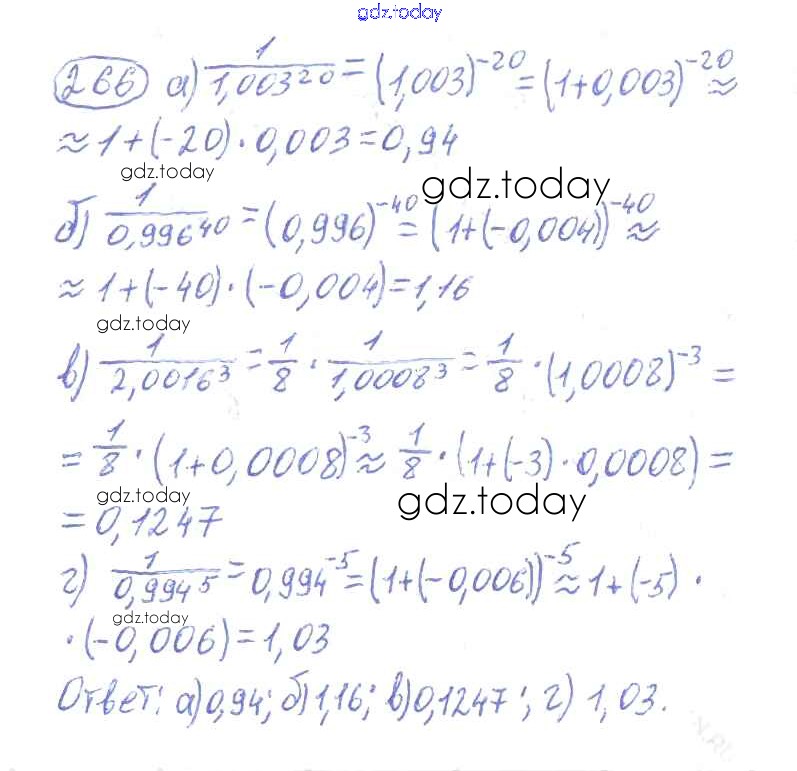 gdz.today
266 а) 1/1,003²⁰ = (1,003)⁻²⁰ = (1+0,003)⁻²⁰ ≈
≈ 1+(-20)·0,003=0,94
gdz.today
gdz.today
б) 1/0,996⁴⁰ = (0,996)⁻⁴⁰ = (1+(-0,004))⁻⁴⁰ ≈
≈ 1+(-40)·(-0,004)=1,16
gdz.today
в) 1/2,0016³ = 1/8 · 1/1,0008³ = 1/8 · (1,0008)⁻³ =
= 1/8 · (1+0,0008)⁻³ ≈ 1/8 · (1+(-3)·0,0008) =
gdz.today
gdz.today
= 0,1247
г) 1/0,994⁵ = 0,994⁻⁵ = (1+(-0,006))⁻⁵ ≈ 1+(-5) ·
gdz.today
· (-0,006) = 1,03
Ответ: а) 0,94; б) 1,16; в) 0,1247; г) 1,03.